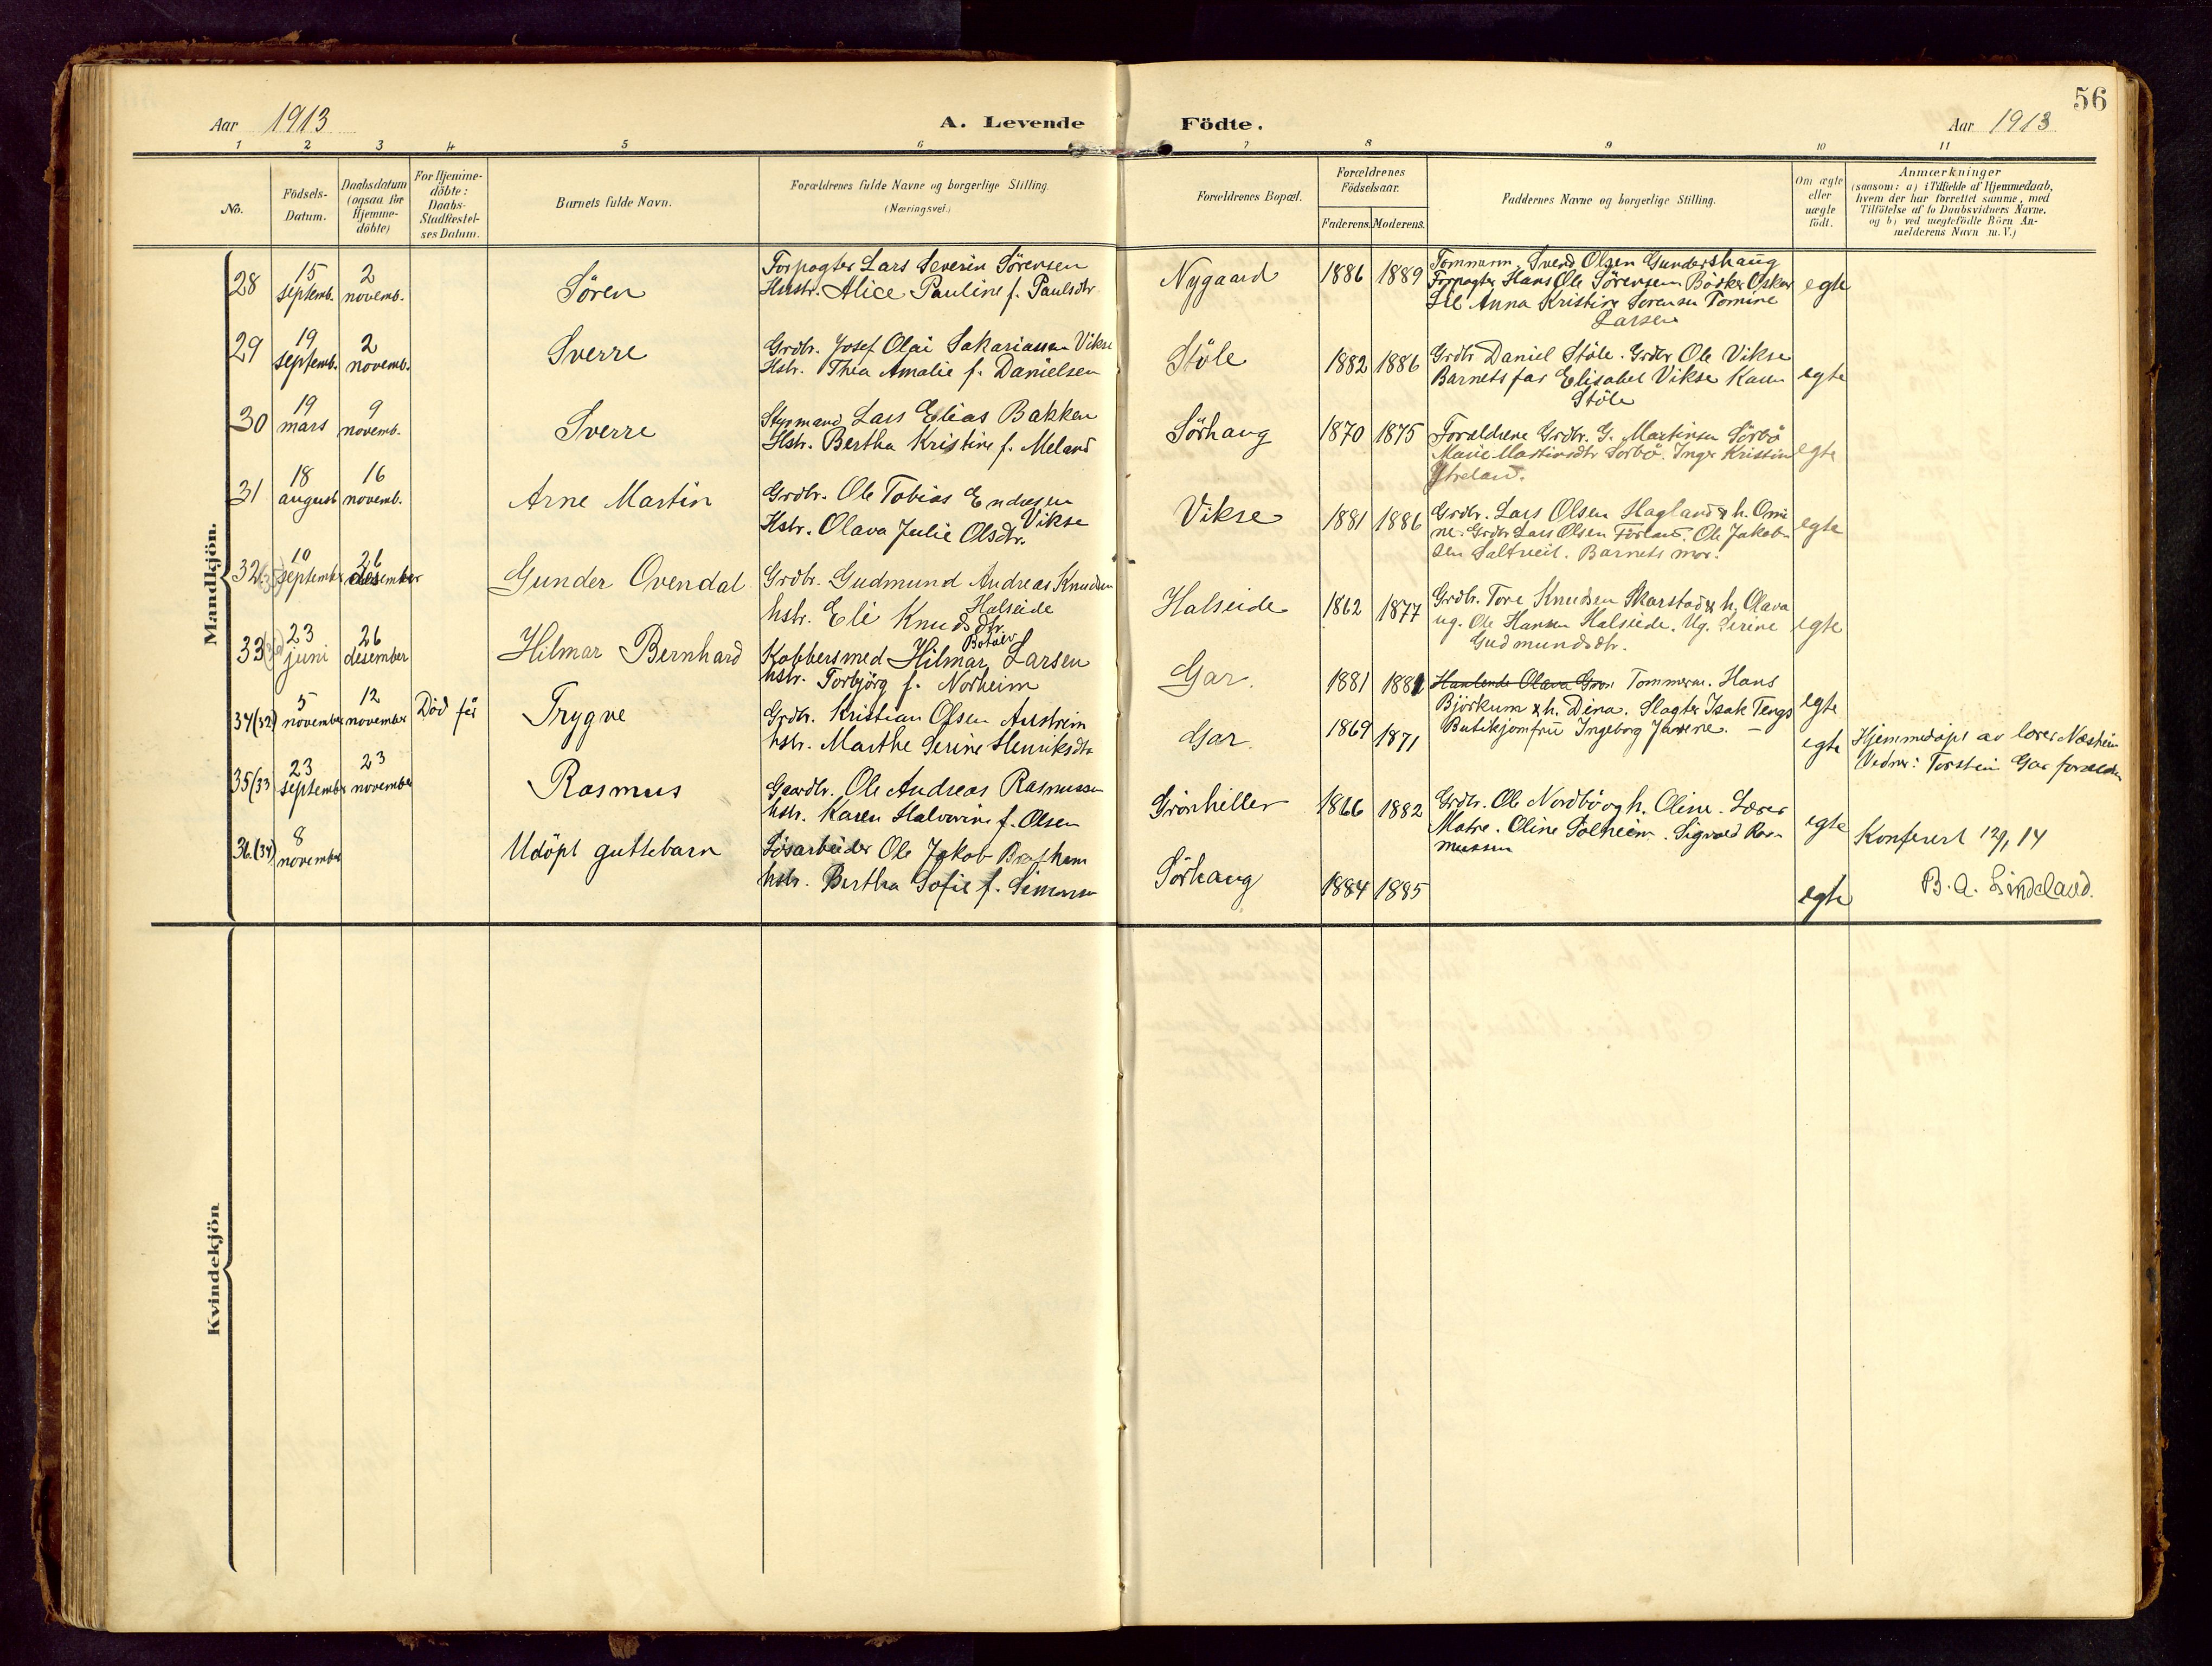 56
Aar 1913
A. Levende Födte.
Aar 1913
1 2 3 4 5 6 7 8 9 10 11
No.
Födsels-
Datum.
Daabsdatum
(ogsaa for
Hjemme-
döbte)
For Hjemme-
döbte:
Daabs-
Stadfæstel-
ses Datum.
Barnets fulde Navn.
Forældrenes fulde Navne og borgerlige Stilling.
(Næringsvei.)
Forældrenes Bopæl.
Forældrenes
Födselsaar.
Faderens. Moderens.
Faddernes Navne og borgerlige Stilling.
Om ægte
eller
uægte
födt.
Anmærkninger
(saasom: a) i Tilfælde af Hjemmedaab,
hvem der har forrettet samme, med
Tilföielse af to Daabsvidners Navne,
og b) ved uægtefödte Börn An-
melderens Navn m. V.)
Mandkjön.
28
15
septemb.
2
novemb.
Sören
Forpagter Lars Severin Sörensen
Hustr. Alice Pauline f. Paulsdtr
Nygaard
1886 1889
Tømmerm. Svend Olsen Gundershaug
Forpagter Hans Ole Sörensen Bödker Oskar
Lie Anna Kristine Sorensen Tomine
Larsen
egte
29
19
septemb.
2
novemb.
Sverre
Grdbr. Josef Olai Sakariassen Vikse
Hstr. Thea Amalie f. Danielsen
Stöle
1882 1886
Grdbr Daniel Stöle. Grdbr Ole Vikse
Barnets far Elisabet Vikse Karen
Stöle
egte
30
19
mars
9
novemb.
Sverre
Styrmand Lars Elias Bakken
Hstr. Bertha Kristine f. Meland
Sörhaug
1870 1875
Forældrene Grdbr. G. Martinsen Sörbö
Marie Martinsdtr Sorbö. Inger Kristine
Ytreland.
egte
31
18
august
16
novemb.
Arne Martin
Grdbr. Ole Tobias Endresen
Vikse
Hstr. Olava Julie Olsdtr.
Vikse
1881 1886
Grdbr. Lars Olsen Hagland & h. Omi
ne. Grdbr Lars Olsen Förland. Ole Jakob-
sen Saltveit. Barnets mor.
egte
32
10
september
26
desember
Gunder Ovendal
Grdbr. Gudmund Andreas Knudsen
Halseide
hstr. Eli Knudsdtr
Halseide
1862 1877
Grdbr. Tore Knudsen Skarstad & h. Olava
ug. Ole Hansen Halseide. Ug. Serine
Gudmundsdtr.
egte
33
23
juni
26
desember
Hilmar Bernhard
Botolv
Kobbersmed Hilmar Larsen
hstr. Torbjörg f. Norheim
Gar.
1881 1881
Tommerm. Hans
Björkum & h. Dina. Slagter Isak Tengs
Butikjomfru Ingeborg
egte
34(32)
5
november
12
november
Död för
Trygve
Grdbr. Kristian Olsen Austreim
hstr. Marthe Serine Henriksdtr
Gar.
1869 1871
egte
Hjemmedöpt av lærer Næsheim
Vedner: Torstein Gar foreldr
35(33
23
september
23
november
Rasmus
Gaardbr. Ole Andreas Rasmussen
hstr. Karen Halvorine f. Olsen
Grönhiller
1866 1882
Grdbr. Ole Nordbö og h. Oline. Lærer
Matre. Oline Solheim. Sigvald Ras-
mussen
egte
Konferert 12/9, 14
36.(34)
8
november
Udöpt guttebarn
Lösarbeider Ole Jakob
hstr. Bertha Sofie f. Simonsen
Sörhaug
1884 1885
egte
B. A. Lindeland.
Kvindekjön